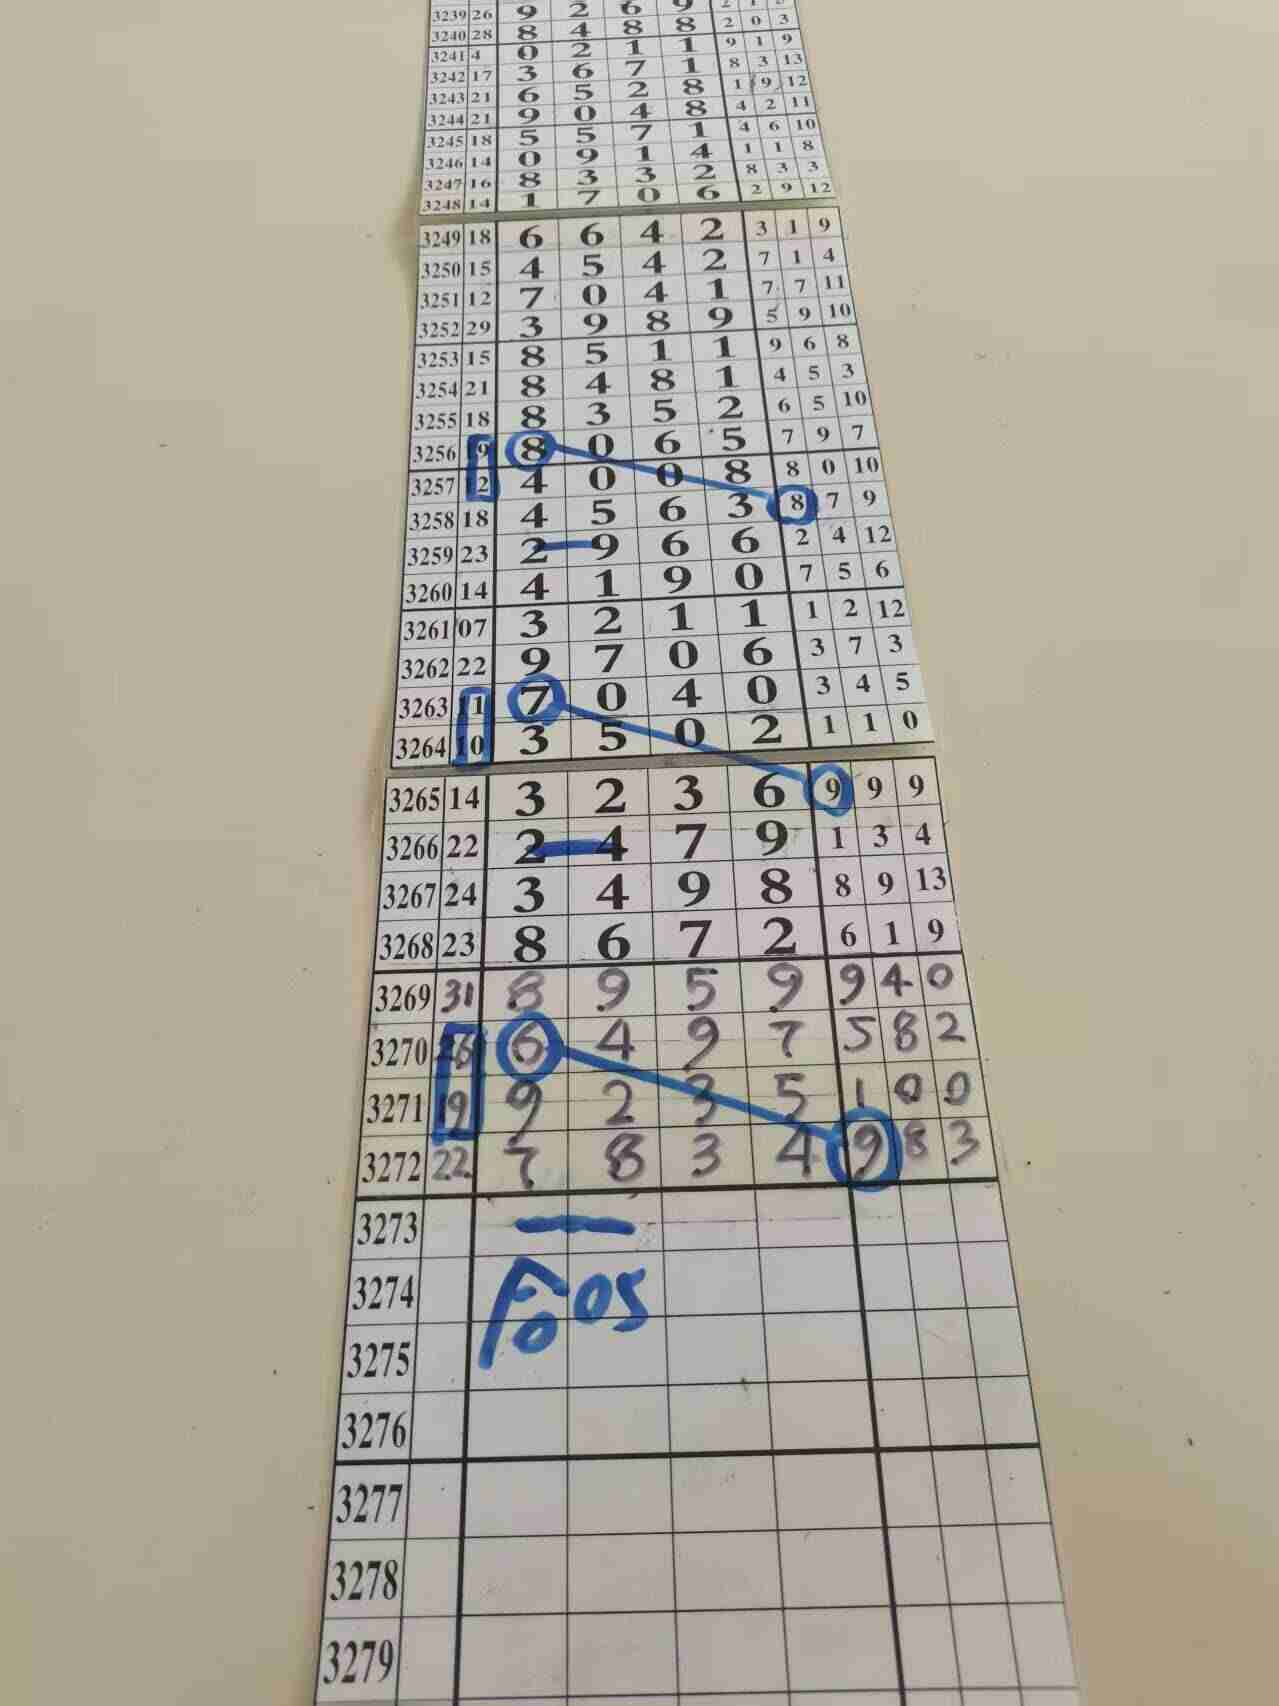 3239 26 9 2 6 9
3240 28 8 4 8 8 2 0 3
3241 4 0 2 1 1 9 1 9
3242 17 3 6 7 1 8 3 13
3243 21 6 5 2 8 1 9 12
3244 21 9 0 4 8 4 2 11
3245 18 5 5 7 1 4 6 10
3246 14 0 9 1 4 1 1 8
3247 16 8 3 3 2 8 3 3
3248 14 1 7 0 6 2 9 12
3249 18 6 6 4 2 3 1 9
3250 15 4 5 4 2 7 1 4
3251 12 7 0 4 1 7 7 11
3252 29 3 9 8 9 5 9 10
3253 15 8 5 1 1 9 6 8
3254 21 8 4 8 1 4 5 3
3255 18 8 3 5 2 6 5 10
3256 19 8 0 6 5 7 9 7
3257 12 4 0 0 8 8 0 10
3258 18 4 5 6 3 8 7 9
3259 23 2 9 6 6 2 4 12
3260 14 4 1 9 0 7 5 6
3261 07 3 2 1 1 1 2 12
3262 22 9 7 0 6 3 7 3
3263 11 7 0 4 0 3 4 5
3264 10 3 5 0 2 1 1 0
3265 14 3 2 3 6 9 9 9
3266 22 2 4 7 9 1 3 4
3267 24 3 4 9 8 8 9 13
3268 23 8 6 7 2 6 1 9
3269 31 8 9 5 9 9 4 0
3270 26 6 4 9 7 5 8 2
3271 19 9 2 3 5 1 0 0
3272 22 7 8 3 4 9 8 3
3273
3274 05
3275
3276
3277
3278
3279